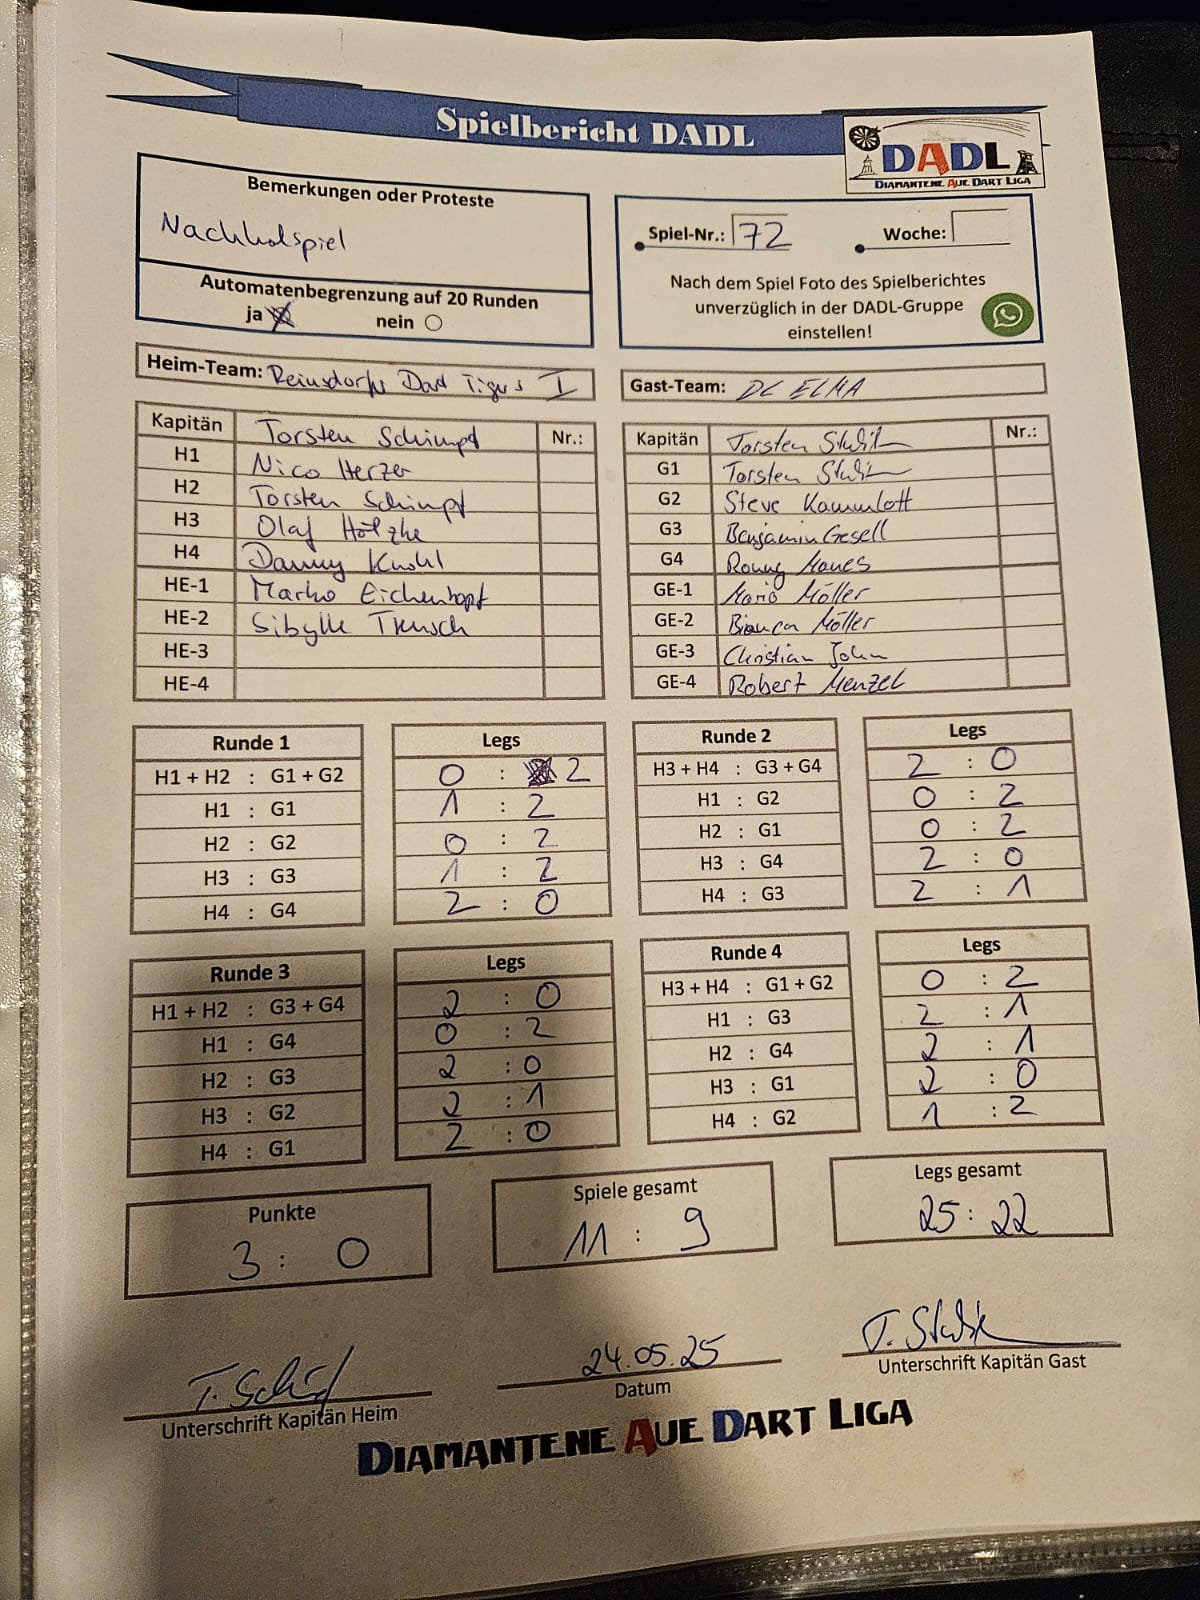 Spielbericht DADL
DADL
DIAMANTENE AUE DART LIGA
Bemerkungen oder Proteste
Nachholspiel
Automatenbegrenzung auf 20 Runden
ja nein
Spiel-Nr.: 72 Woche:
Nach dem Spiel Foto des Spielberichtes
unverzüglich in der DADL-Gruppe
einstellen!
Heim-Team: Reinsdorfer Dart Tigers I
Gast-Team: DC ELMA
Kapitän Torsten Schimpf Nr.:
H1 Nico Herzer
H2 Torsten Schimpf
H3 Olaf
H4 Danny
HE-1 Marko Eichentopf
HE-2 Sibylle
HE-3
HE-4
Kapitän Torsten Nr.:
G1 Torsten
G2 Steve Kammlott
G3 Benjamin Gesell
G4 Ronny
GE-1 Mario Möller
GE-2 Bianca Möller
GE-3 Christian John
GE-4 Robert Menzel
Runde 1 Legs
H1 + H2 : G1 + G2 0 : 2
H1 : G1 1 : 2
H2 : G2 0 : 2
H3 : G3 1 : 2
H4 : G4 2 : 0
Runde 2 Legs
H3 + H4 : G3 + G4 2 : 0
H1 : G2 0 : 2
H2 : G1 0 : 2
H3 : G4 2 : 0
H4 : G3 2 : 1
Runde 3 Legs
H1 + H2 : G3 + G4 2 : 0
H1 : G4 0 : 2
H2 : G3 2 : 0
H3 : G2 2 : 1
H4 : G1 2 : 0
Runde 4 Legs
H3 + H4 : G1 + G2 0 : 2
H1 : G3 2 : 1
H2 : G4 2 : 1
H3 : G1 2 : 0
H4 : G2 1 : 2
Punkte
3 : 0
Spiele gesamt
11 : 9
Legs gesamt
25 : 22
Unterschrift Kapitän Heim
24.05.25
Datum
Unterschrift Kapitän Gast
DIAMANTENE AUE DART LIGA